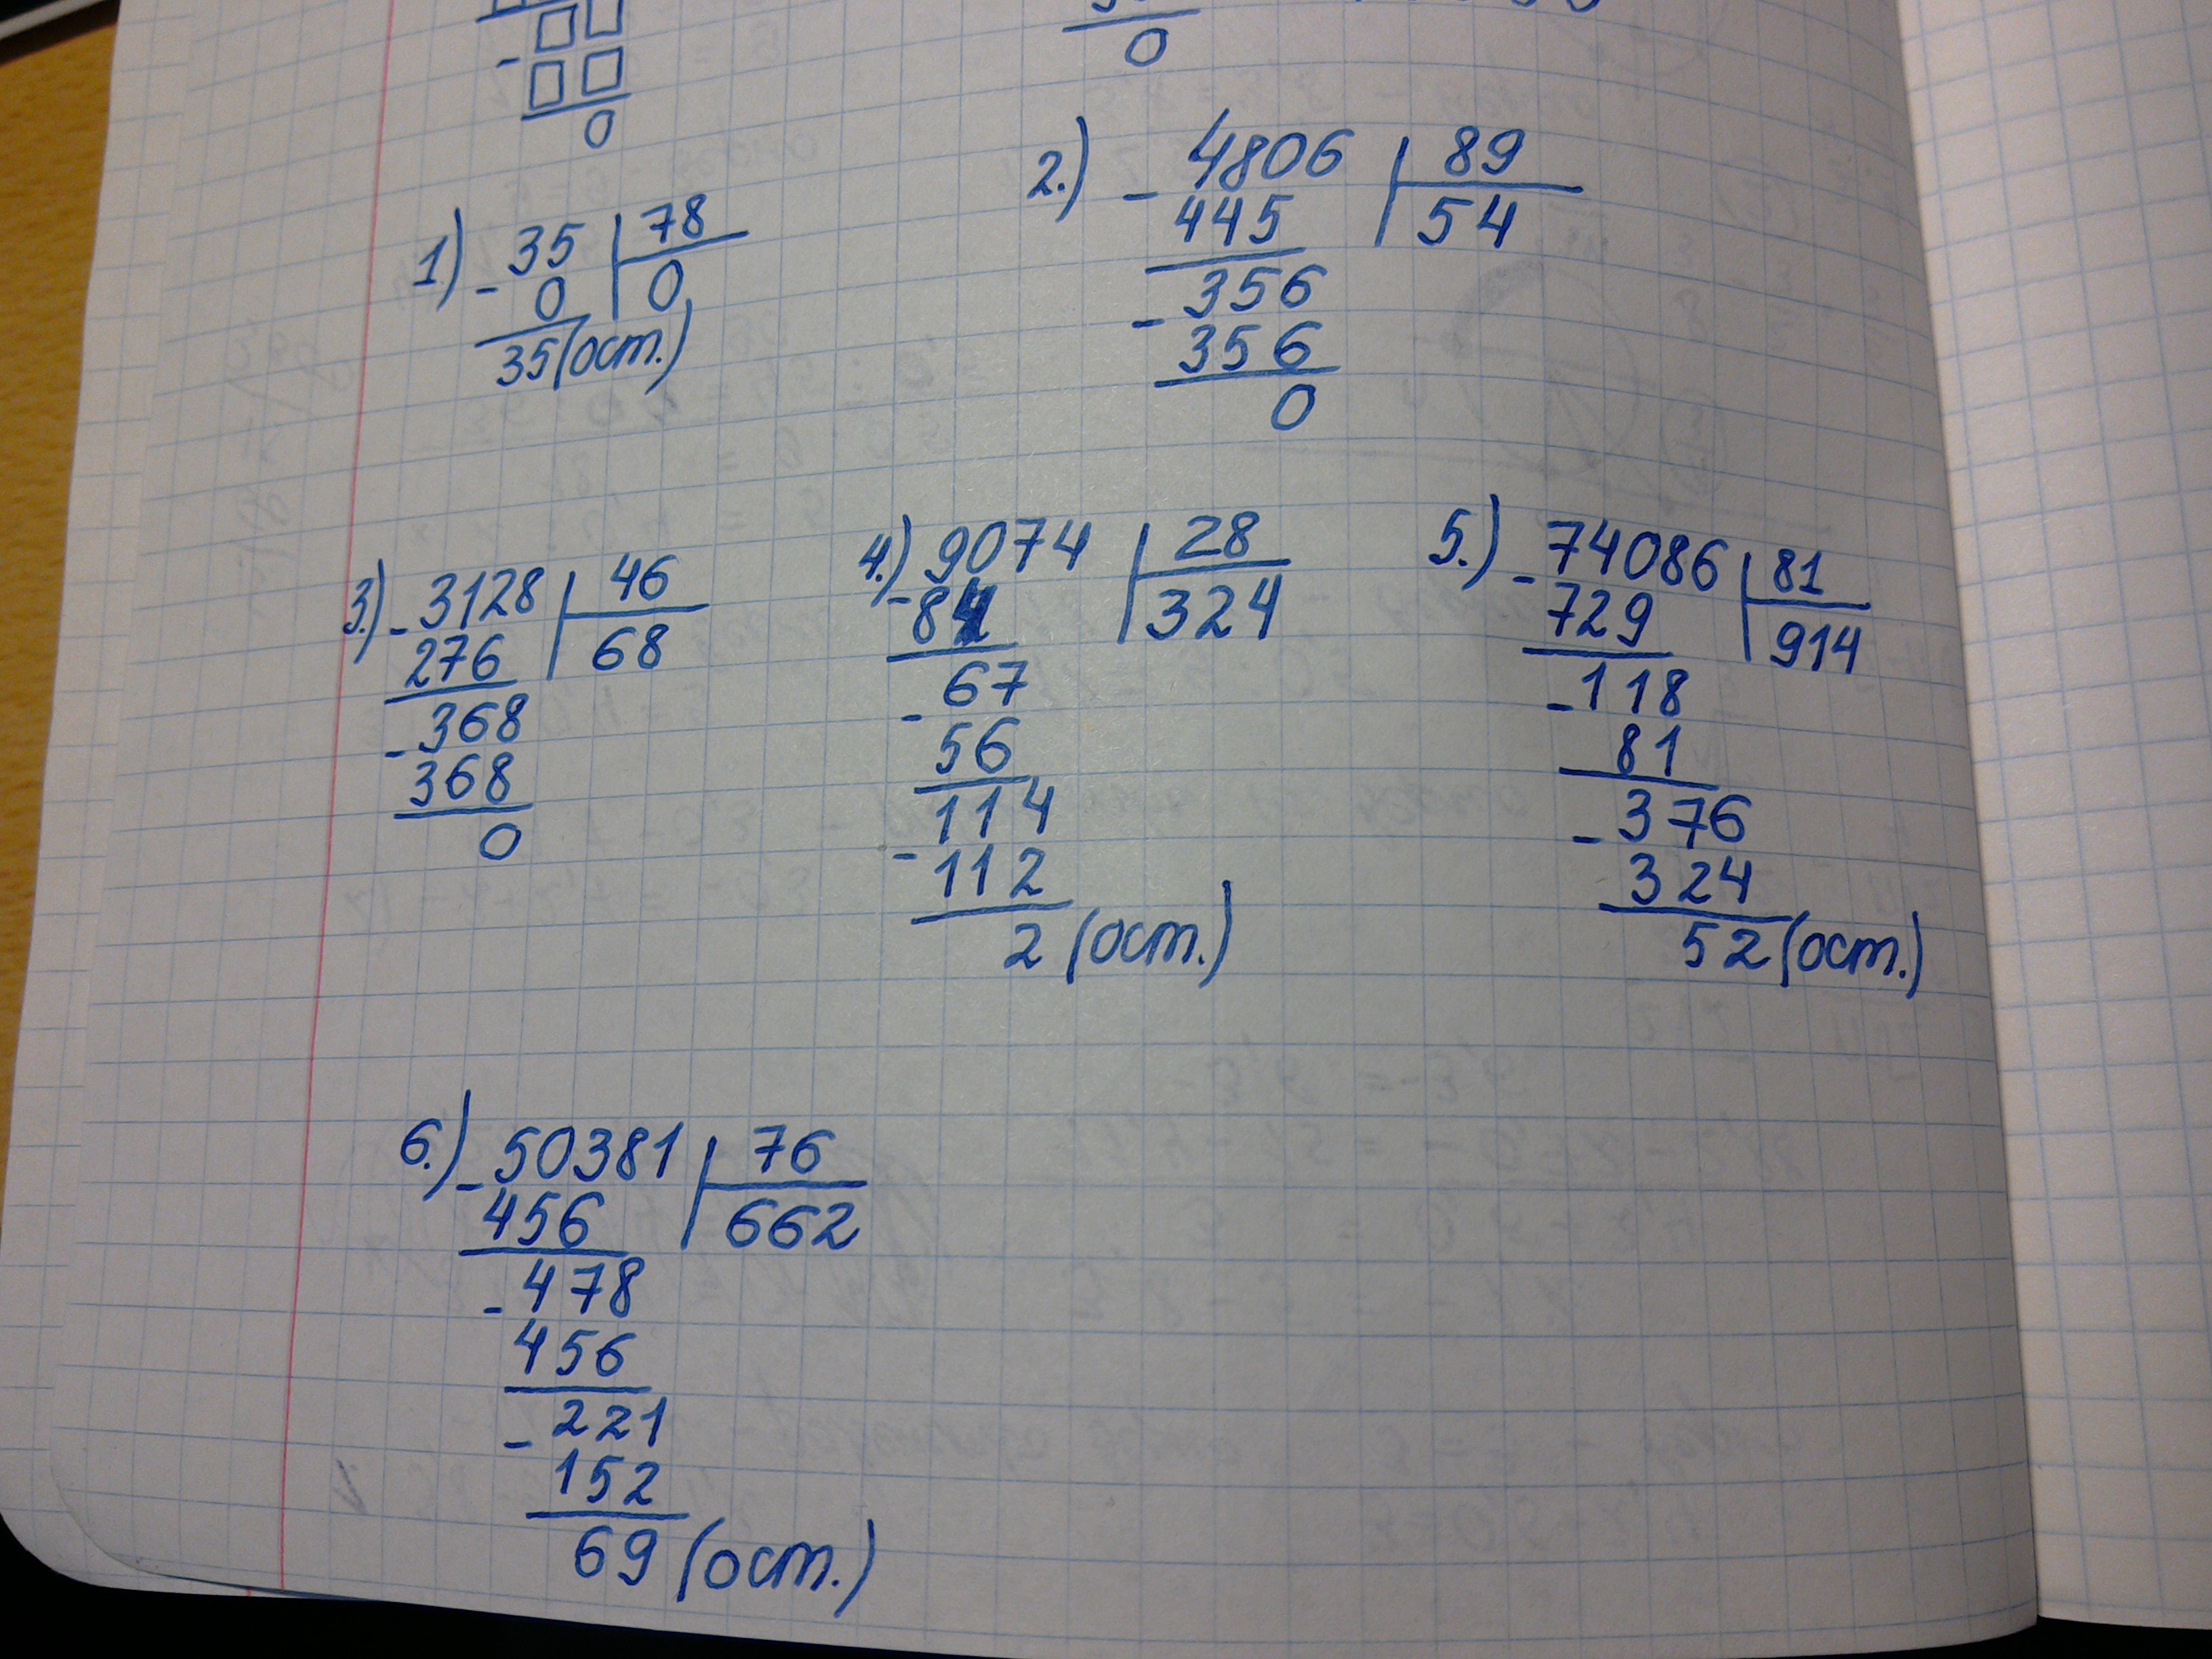 0
0
1) - 35 | 78
- 0 | 0
35 (ост.)
2.) - 4806 | 89
445 | 54
- 356
356
0
3.) - 3128 | 46
276 | 68
- 368
368
0
4.) - 9074 | 28
84 | 324
- 67
56
- 114
112
2 (ост.)
5.) - 74086 | 81
729 | 914
- 118
81
- 376
324
52 (ост.)
6.) - 50381 | 76
456 | 662
- 478
456
- 221
152
69 (ост.)